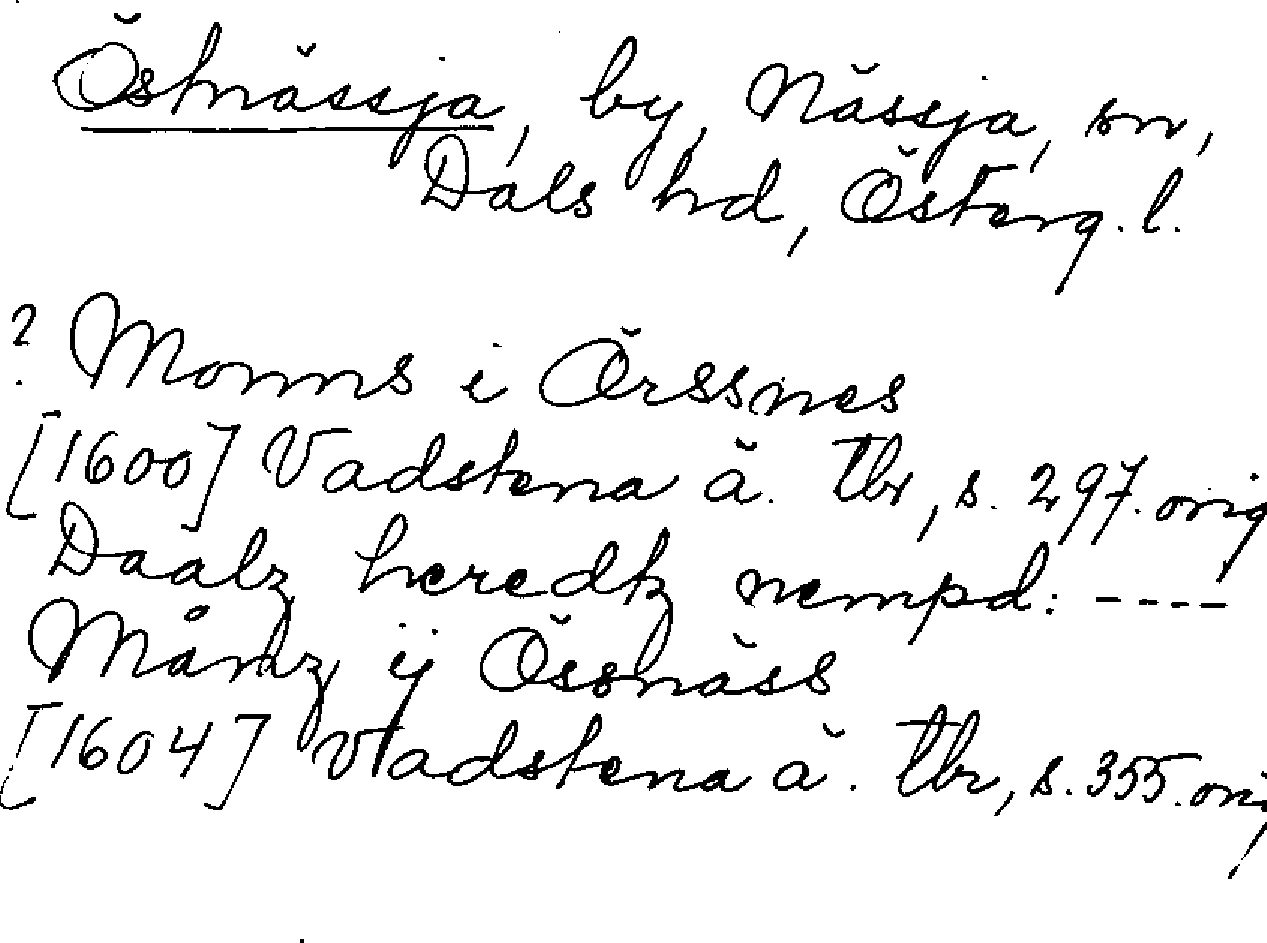 Östnässja, by, Nässja, sn,
Dals hd, Österg. l.
? Monns i Örssnes
[1600] Vadstena ä. tbr, s. 297. orig
Daalz heredtz nempd: ----
Månz ij Össnäss
[1604] Vadstena ä. tbr, s. 355. orig